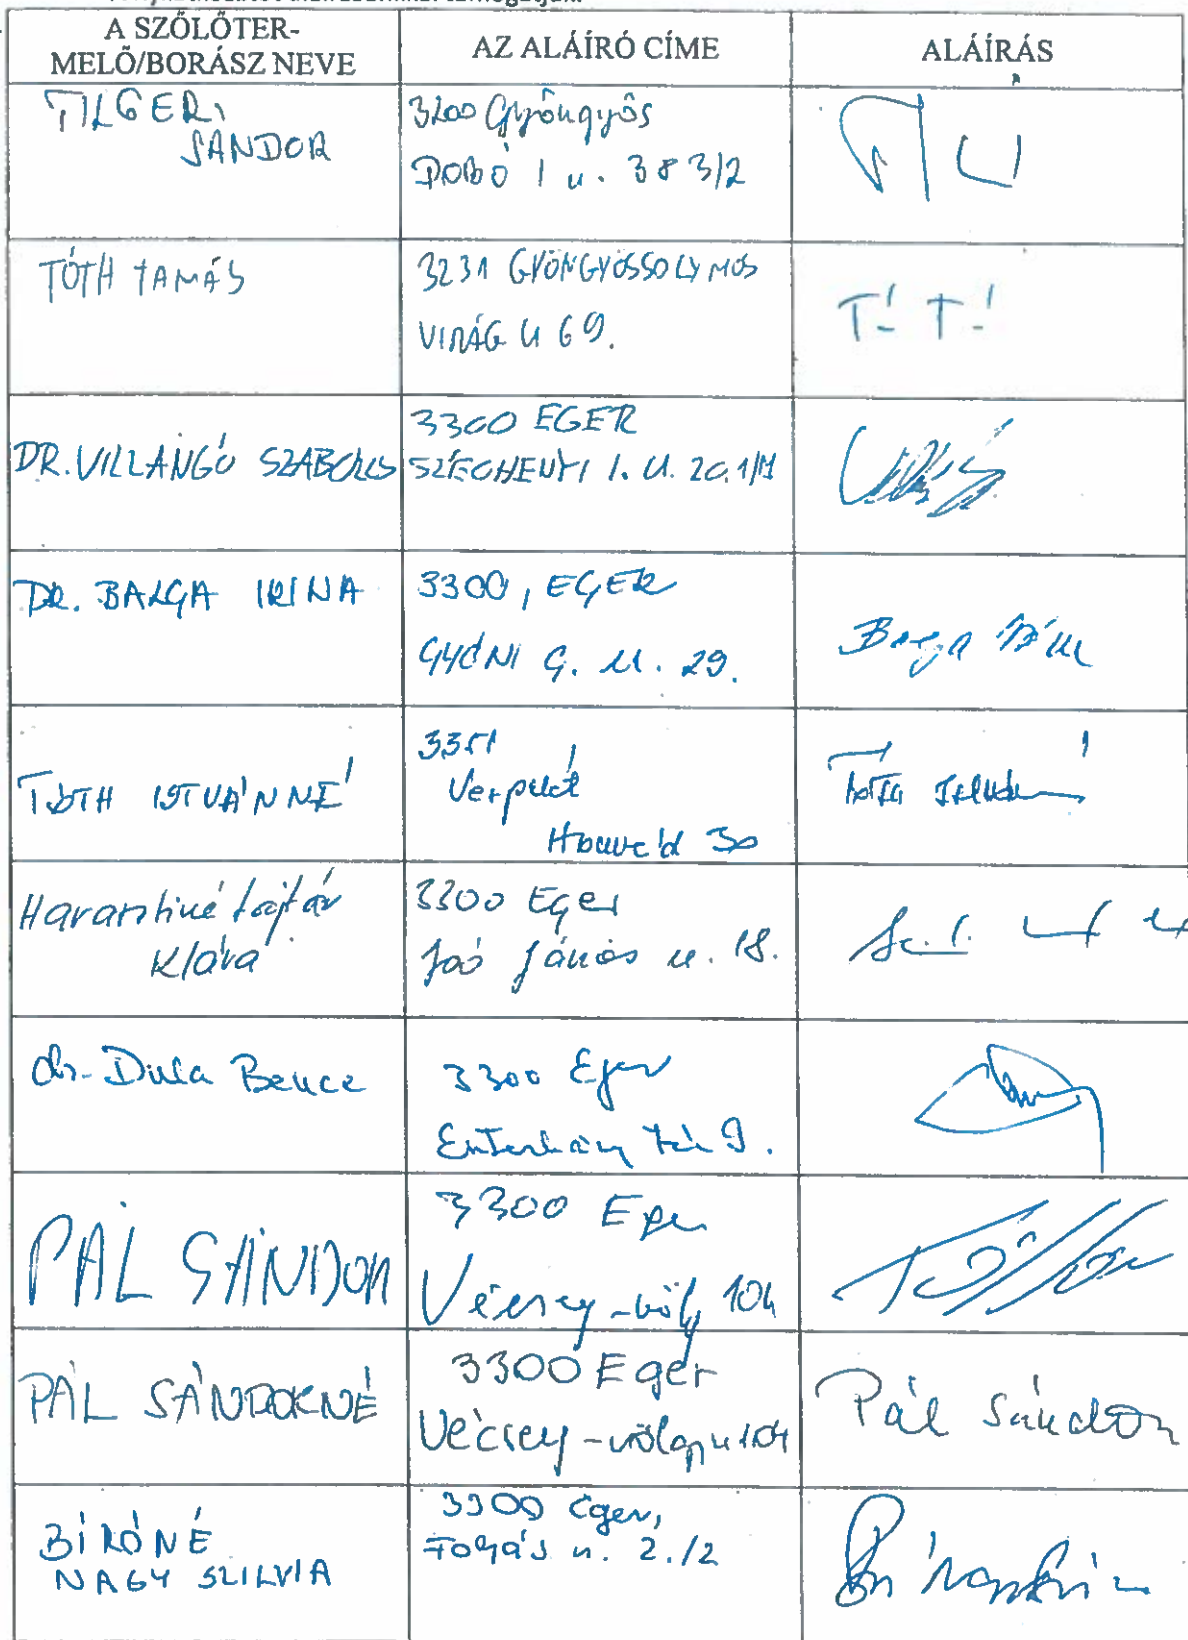 A SZŐLŐTER-
MELŐ/BORÁSZ NEVE
AZ ALÁÍRÓ CÍME
ALÁÍRÁS
FILGERI
SÁNDOR
3200 Gyöngyös
DOBÓ I u. 383/2
TÓTH TAMÁS
3231 GYÖNGYÖSSOLYMOS
VIRÁG U 69.
T. T.
DR. VILLANGÓ SZABOLCS
3300 EGER
SZÉCHENYI I. U. 20. 1/11
DR. BALGA IRINA
3300, EGER
GYÓNI G. U. 29.
Balga Irina
TÓTH ISTVÁNNÉ
3351
Verpelét
Honvéd 30
Tóth Istvánné
Harantiné Lajtár
Klára
3300 Eger
Joó János u. 18.
dr. Dula Bence
3300 Eger
tér 9.
PÁL SÁNDOR
3300 Eger
Vécsey-völgy 104
PÁL SÁNDORNÉ
3300 Eger
Vécsey-völgy u 104
Pál Sándor
BÍRÓNÉ
NAGY SZILVIA
3300 Eger,
Fogás u. 2./2